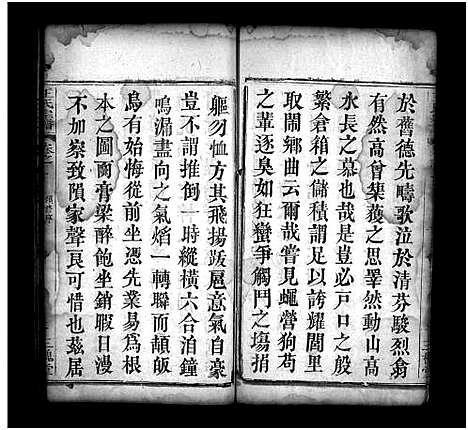 於舊德先疇歌泣於清芬駿烈翕
有然高曾榘矱之思畧然動山高
水長之慕也哉是豈必戸口之殷
繁倉箱之儲積謂足以誇耀閭里
取閙鄉曲云爾哉嘗見蠅營狗苟
之輩逐臭如狂蠻爭觸鬥之塲捐
軀勿恤方其飛揚跋扈意氣自豪
豈不謂推倒一時縱橫六合洎鐘
鳴漏盡向之氣熖一轉瞬而顛皈
烏有始悔從前坐憑先業易爲根
本之圖而膏粱醉飽坐銷暇日漫
不加察致隕家聲良可惜也茲居